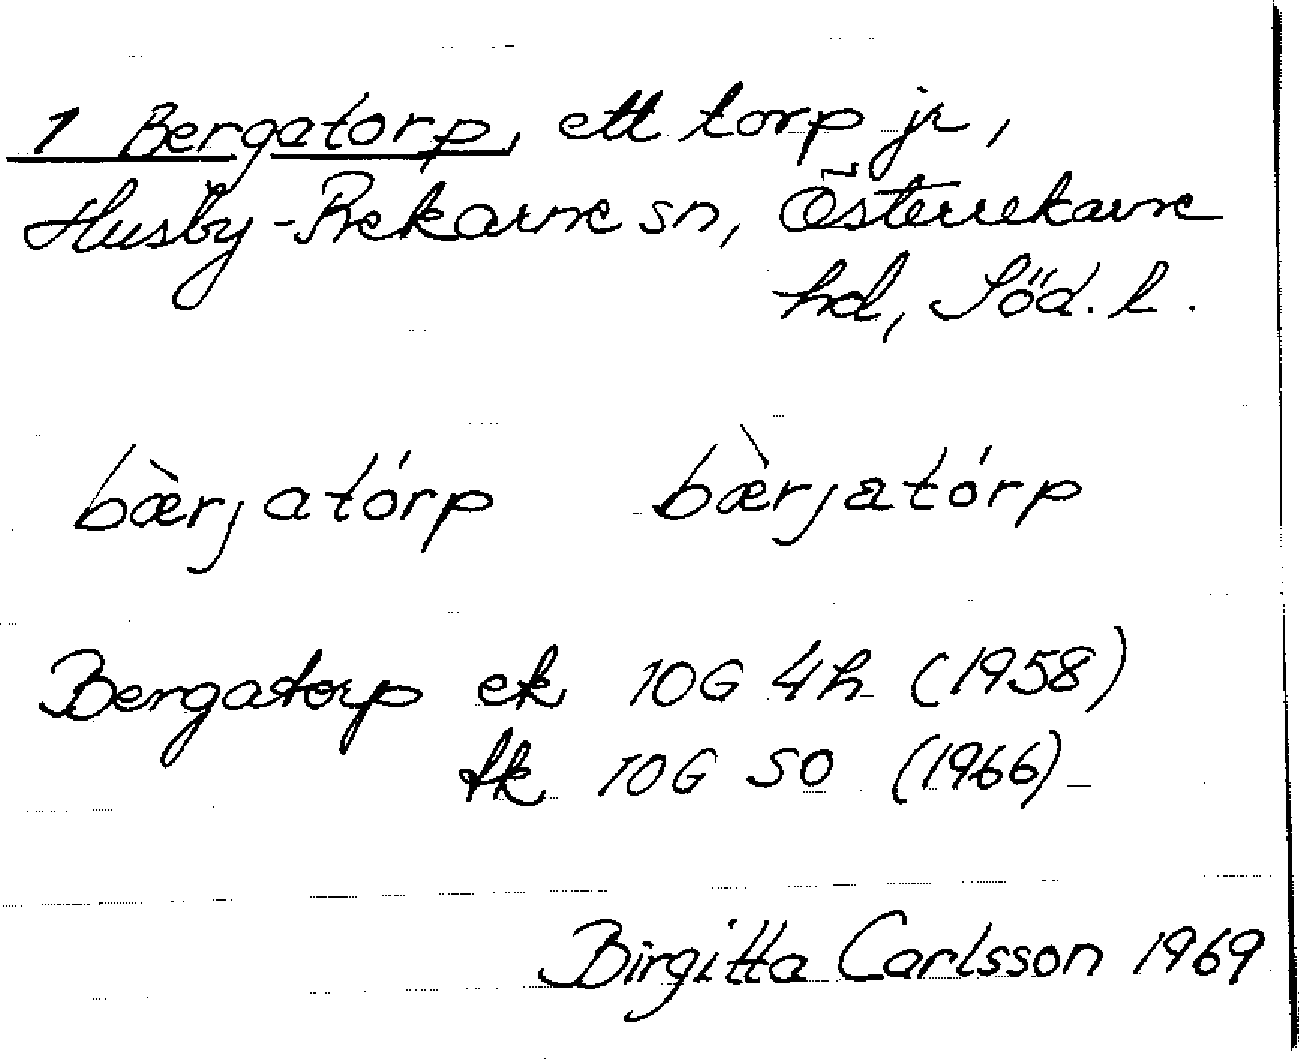 1 Bergatorp, ett torp jr,
Husby-Rekarne sn, Österrekarne
hd, Söd. l.
bæ̀rjatórp bæ̀rjatórp
Bergatorp ek 10G 4h (1958)
tk 10G SO (1966)
Birgitta Carlsson 1969